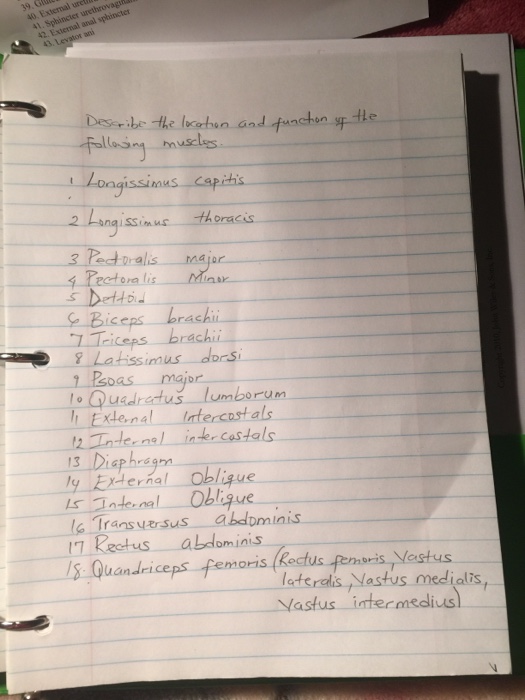 40. External
41. Sphincter
42. External anal sphincter
43. Levator ani
Describe the location and function of the
following muscles.
1 Longissimus capitis
2 Longissimus thoracis
3 Pectoralis major
4 Pectoralis Minor
5 Deltoid
6 Biceps brachii
7 Triceps brachii
8 Latissimus dorsi
9 Psoas major
10 Quadratus lumborum
11 External Intercostals
12 Internal intercostals
13 Diaphragm
14 External Oblique
15 Internal Oblique
16 Transversus abdominis
17 Rectus abdominis
18. Quandriceps femoris (Rectus femoris, Vastus
lateralis, Vastus medialis,
Vastus intermedius)